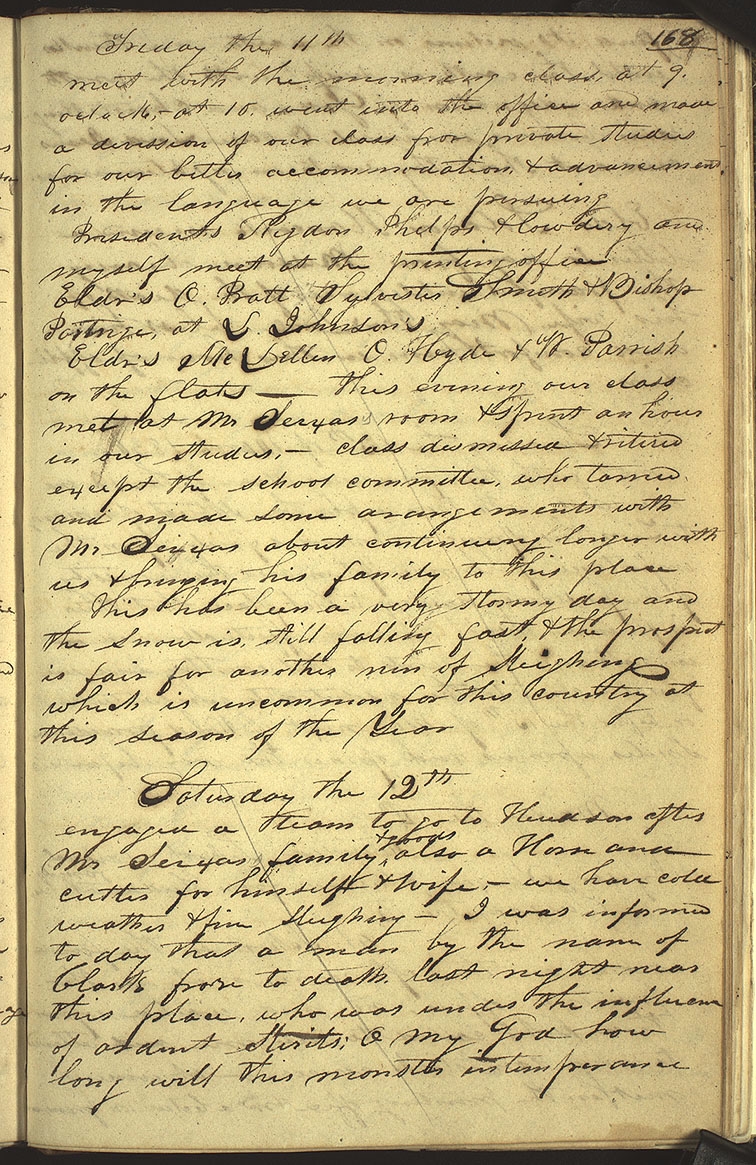 168
Friday the 11th
meet with the morning class, at 9.
oclock,– at 10. went into the office and made
a division of our class for private studies
for our better accommodation, & advancement
in the language we are pursuing
Presidents Rigdon Phelps & Cowdery and
myself meet at the printing office
Eldr's O. Pratt Sylvester Smith & Bishop
Partrige, at L. Johnson's
Eldr's Mc Lellen O. Hyde & W. Parrish
on the flats — this evening our class
met at Mr Seixas room & spent an hour
in our studies,– class dismissed & retired
except the school committee, who tarried
and made some arangements with
Mr Seixas about continuing longer with
us & bringing his family to this place
This has been a very stormy day and
the snow is still falling fast, & the prospect
is fair for another run of sleighing
which is uncommon for this country at
this season of the Year
Saturday the 12th
engaged a team to go to Hudson after
Mr Seixas family, & goods also a Horse and
cutter for himself & wife,– we have cold
weather & fine sleighing – I was informed
to day that a man by the name of
Clark froze to death last night near
this place, who was under the influence
of ardent spirits; O my God how
long will this monster intemperance